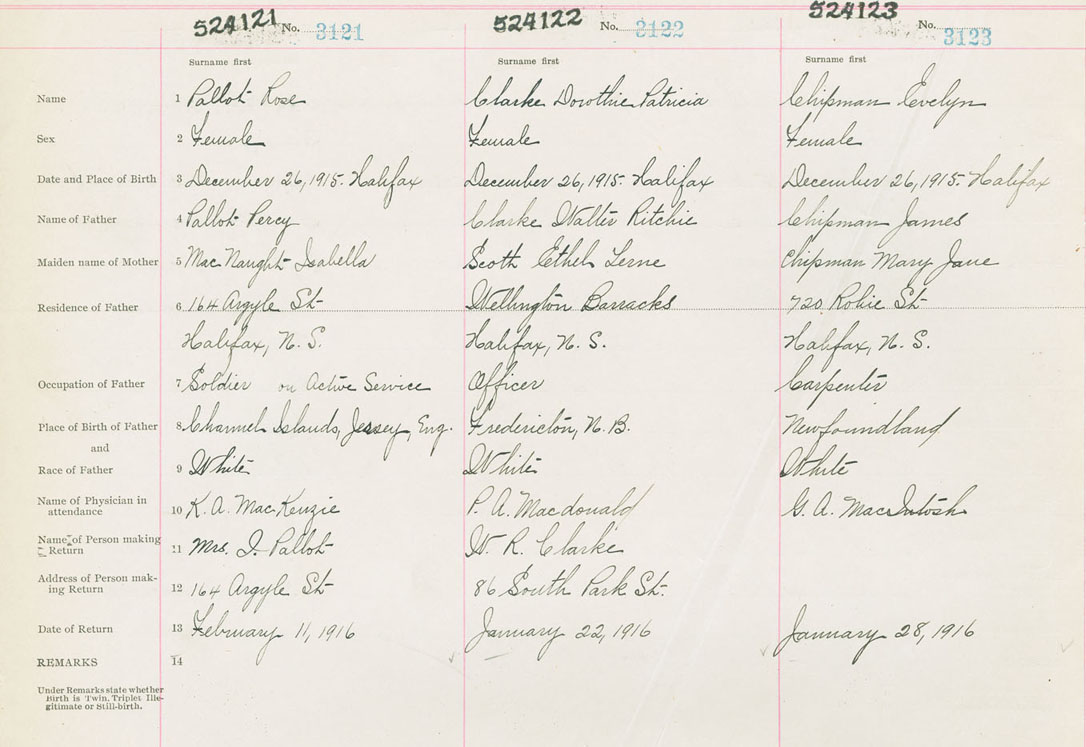 524121 No. 3121 524122 No. 3122 524123 No. 3123
Surname first Surname first Surname first
Name 1 Pallot Rose Clarke Dorothie Patricia Chipman Evelyn
Sex 2 Female Female Female
Date and Place of Birth 3 December 26, 1915. Halifax December 26, 1915. Halifax December 26, 1915. Halifax
Name of Father 4 Pallot Percy Clarke Walter Ritchie Chipman James
Maiden name of Mother 5 MacNaught Isabella Scott Ethel Chipman Mary Jane
Residence of Father 6 164 Argyle St Wellington Barracks 720 Robie St
Halifax, N. S. Halifax, N. S. Halifax, N. S.
Occupation of Father 7 Soldier on Active Service Officer Carpenter
Place of Birth of Father 8 Channel Islands, Jersey, Eng. Fredericton, N. B. Newfoundland
and
Race of Father 9 White White White
Name of Physician in
attendance 10 K. A. MacKenzie P. A. Macdonald G. A. MacIntosh
Name of Person making
Return 11 Mrs. I. Pallot W. R. Clarke
Address of Person mak-
ing Return 12 164 Argyle St 86 South Park St.
Date of Return 13 February 11, 1916 January 22, 1916 January 28, 1916
REMARKS 14
Under Remarks state whether
Birth is Twin, Triplet Ille-
gitimate or Still-birth.